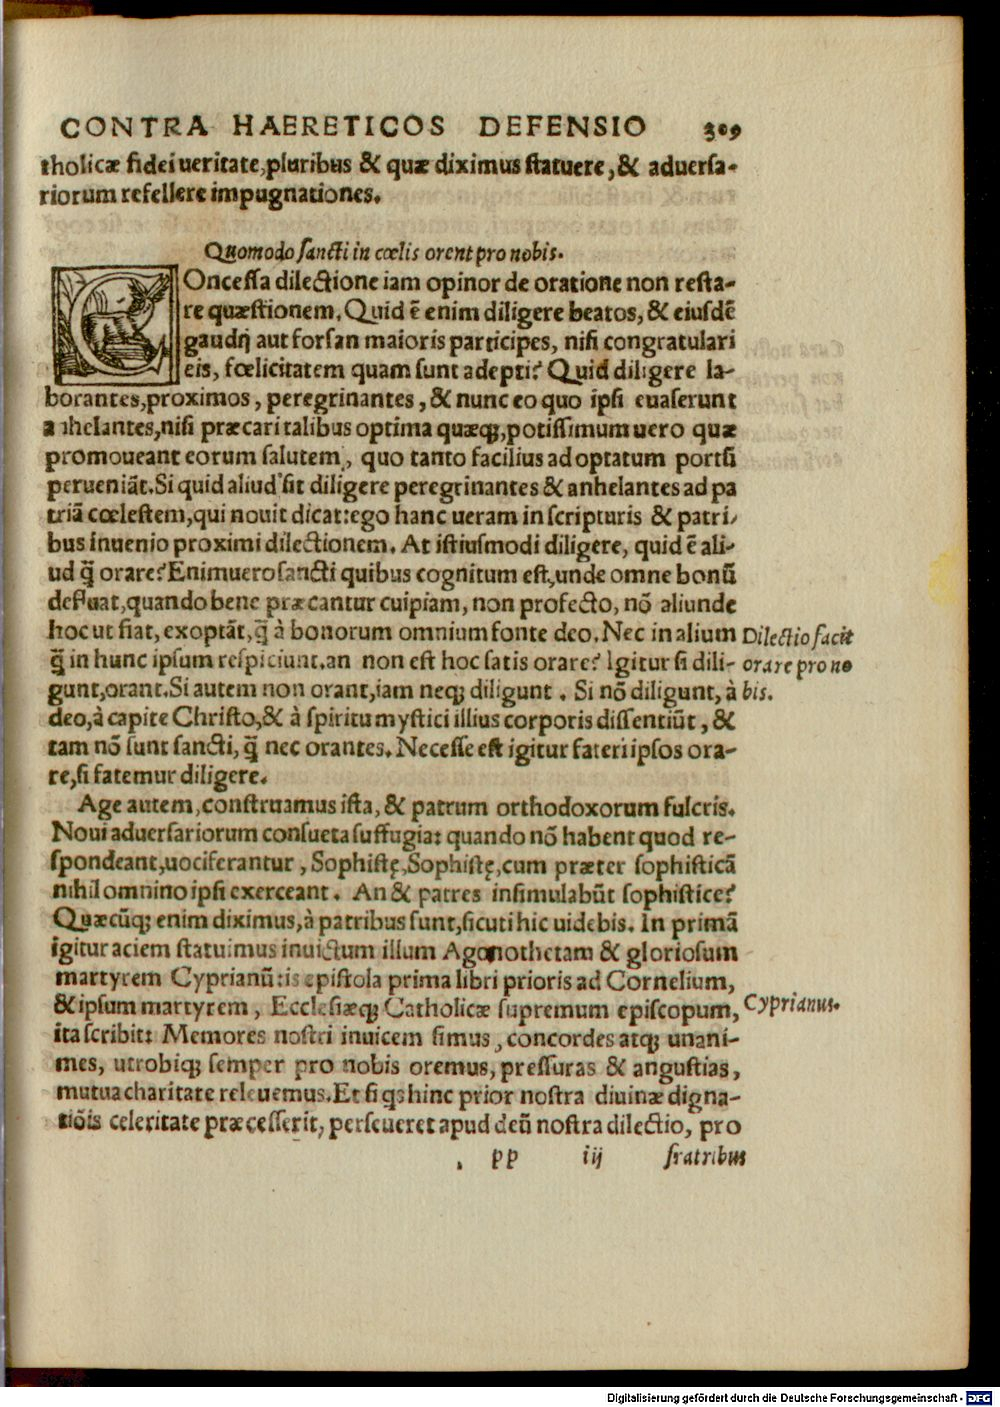 CONTRA HAERETICOS DEFENSIO 309
tholicæ fidei ueritate,pluribus & quæ diximus statuere,& aduersa-
riorum refellere impugnationes.
Quomodo sancti in cœlis orent pro nobis.
COncessa dilectione iam opinor de oratione non resta-
re quæstionem. Quid ē enim diligere beatos, & eiusdē
gaudij aut forsan maioris participes, nisi congratulari
eis, fœlicitatem quam sunt adepti? Quid diligere la-
borantes,proximos, peregrinantes, & nunc eo quo ipsi euaserunt
anhelantes,nisi præcari talibus optima quæq;,potissimum uero quæ
promoueant eorum salutem, quo tanto facilius ad optatum portū
perueniāt.Si quid aliud sit diligere peregrinantes & anhelantes ad pa
triā cœlestem,qui nouit dicat:ego hanc ueram in scripturis & patri-
bus inuenio proximi dilectionem. At istiusmodi diligere, quid ē ali-
ud q̄ orare? Enimuero sancti quibus cognitum est,unde omne bonū
defluat,quando bene præcantur cuipiam, non profecto, nō aliunde
hoc ut fiat, exoptāt,q̄ à bonorum omnium fonte deo. Nec in alium
q̄ in hunc ipsum respiciunt.an non est hoc satis orare? Igitur si dili-
gunt,orant.Si autem non orant,iam neq; diligunt. Si nō diligunt, à
Dilectio facit
orare pro no
bis.
deo,à capite Christo,& à spiritu mystici illius corporis dissentiūt, &
tam nō sunt sancti, q̄ nec orantes. Necesse est igitur fateri ipsos ora-
re,si fatemur diligere.
Age autem, construamus ista, & patrum orthodoxorum fulcris.
Noui aduersariorum consueta suffugia: quando nō habent quod re-
spondeant,uociferantur, Sophistę,Sophistę,cum præter sophisticā
nihil omnino ipsi exerceant. An & patres insimulabūt sophistice?
Quæcūq; enim diximus,à patribus sunt,sicuti hic uidebis. In primā
igitur aciem statuimus inuictum illum Agonothetam & gloriosum
martyrem Cyprianū:is epistola prima libri prioris ad Cornelium,
& ipsum martyrem, Ecclesiæq; Catholicæ supremum episcopum,
Cyprianus.
ita scribit: Memores nostri inuicem simus, concordes atq; unani-
mes, utrobiq; semper pro nobis oremus, pressuras & angustias,
mutua charitate releuemus.Et si qs hinc prior nostra diuinæ digna-
tiōis celeritate præcesserit, perseueret apud deū nostra dilectio, pro
pp iij fratribus
Digitalisierung gefördert durch die Deutsche Forschungsgemeinschaft - DFG